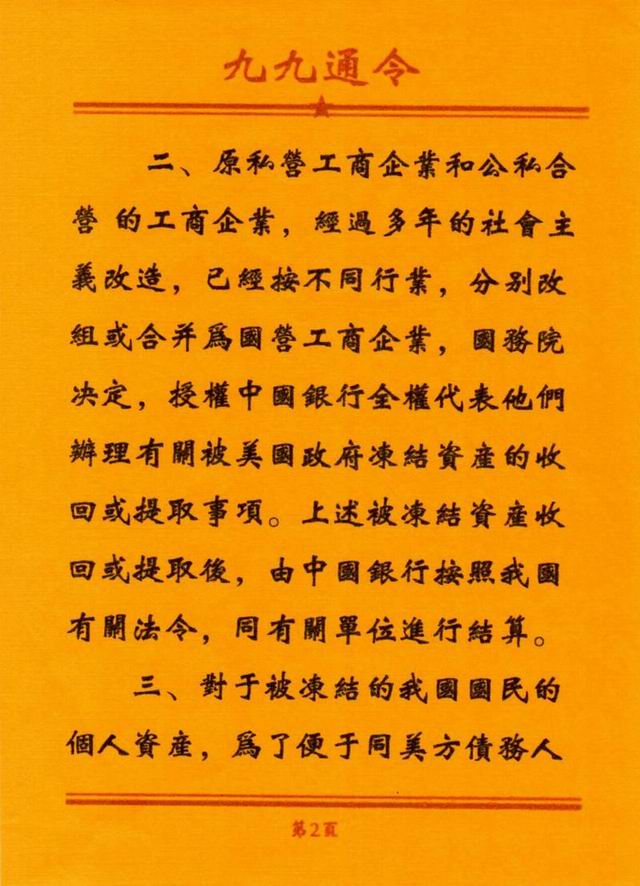 九九通令
二、原私營工商企業和公私合
營 的工商企業，經過多年的社會主
義改造，已經按不同行業，分别改
組或合并爲國營工商企業，國務院
决定，授權中國銀行全權代表他們
辦理有關被美國政府凍結資産的收
回或提取事項。上述被凍結資産收
回或提取後，由中國銀行按照我國
有關法令，同有關單位進行結算。
三、對于被凍結的我國國民的
個人資産，爲了便于同美方債務人
第2頁